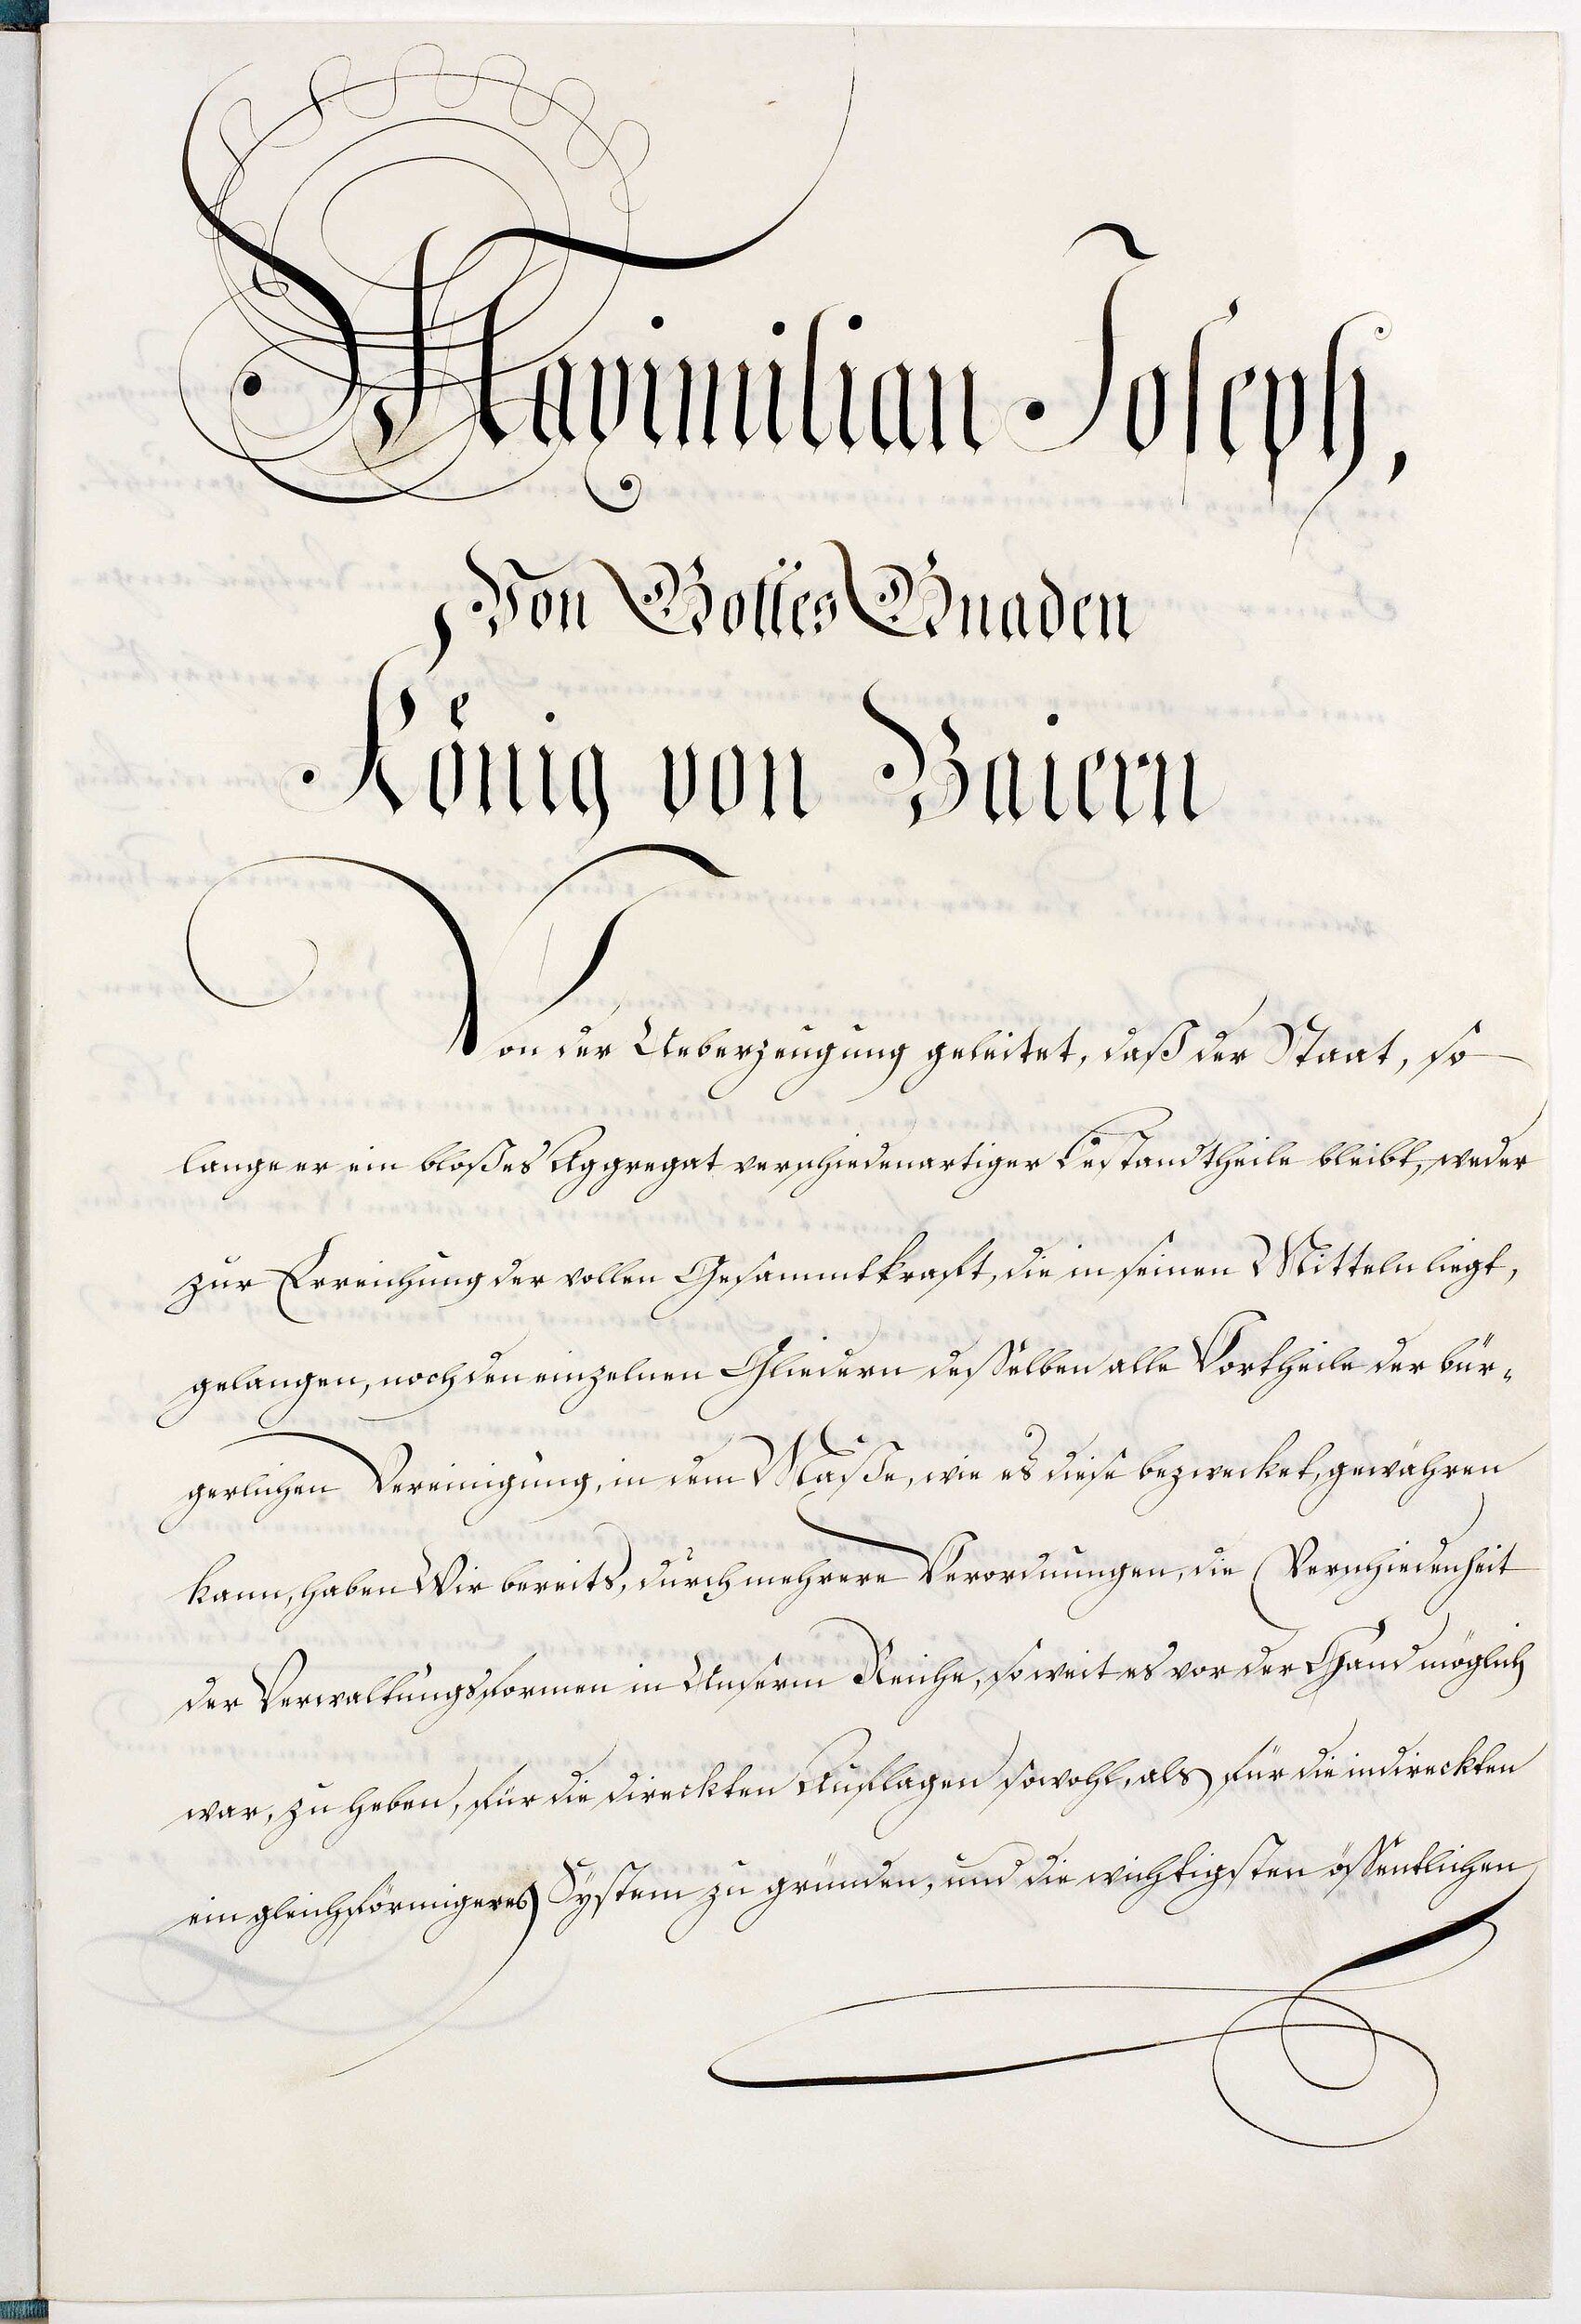 Maximilian Joseph,
Von Gottes Gnaden
König von Baiern
Von der Ueberzeugung geleitet, daß der Staat, so
lange er ein bloßes Aggregat verschiedenartiger Bestandtheile bleibt, weder
zur Erreichung der vollen Gesammtkraft, die in seinen Mitteln liegt,
gelangen, noch den einzelnen Gliedern desselben alle Vortheile der bür-
gerlichen Vereinigung, in dem Maße, wie es diese bezwecket, gewähren
kann, haben Wir bereits, durch mehrere Verordnungen, die Verschiedenheit
der Verwaltungsformen in Unserm Reiche, so weit es vor der Hand möglich
war, zu heben, für die direckten Auflagen sowohl, als für die indireckten
ein gleichförmigeres System zu gründen, und die wichtigsten öffentlichen